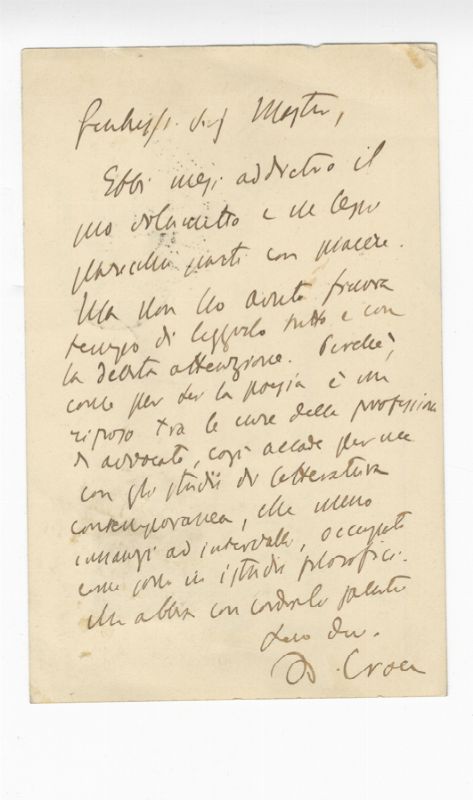 Gentiliss. Sig. Mastri,
Ebbi mesi addietro il
suo volumetto e ne lessi
parecchie parti con piacere.
Ma non ho avuto finora
tempo di leggerlo tutto e con
la debita attenzione. Perché,
come per Lei la poesia è un
riposo tra le cure della professione
di avvocato, così accade per me
con gli studii di letteratura
contemporanea, che meno
innanzi ad intervalli, occupato
come sono in istudii filosofici.
Mi abbia con cordiale saluto
Suo dev.
B. Croce